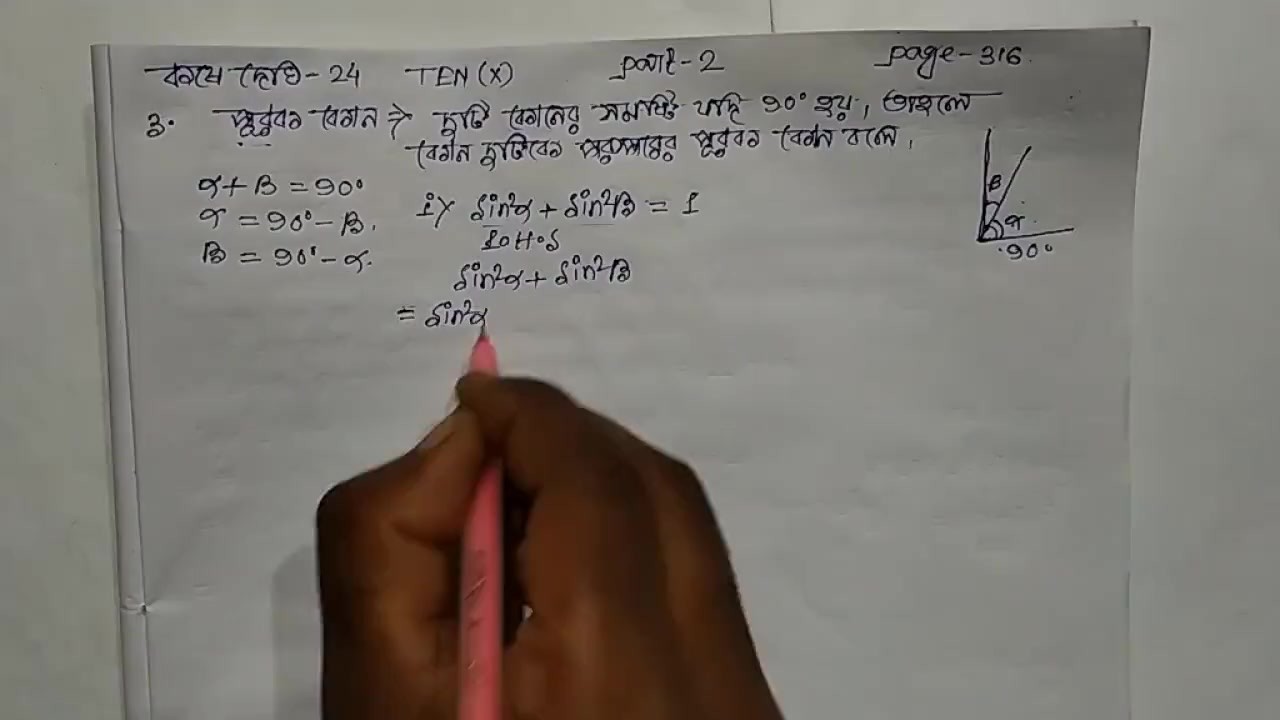 কষে দেখি - 24 TEN (X) part - 2 page - 316.
3. পূরক কোন ⇒ দুটি কোনের সমষ্টি যদি 90° হয়, তাহলে
কোন দুটিকে পরস্পরের পূরক কোন বলে।
α + β = 90°
α = 90° - β.
β = 90° - α.
i) sin²α + sin²β = 1
L.H.S
sin²α + sin²β
= sin²α
β
α
90°